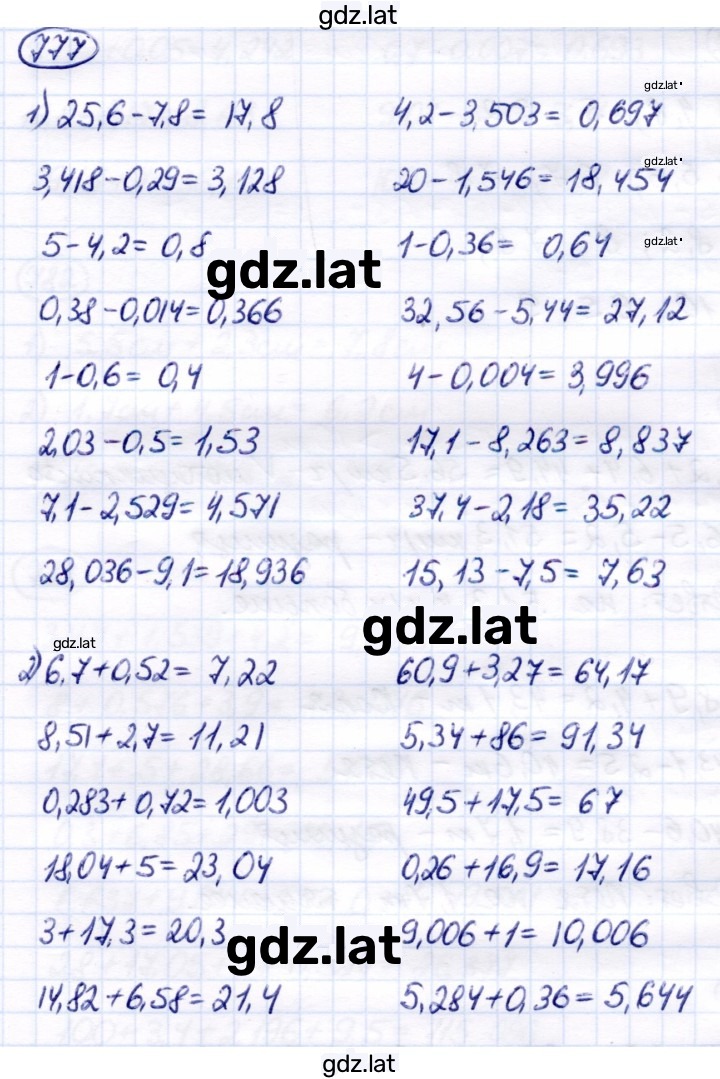 gdz.lat
777
gdz.lat
1) 25,6-7,8= 17,8 4,2-3,503= 0,697
gdz.lat
3,418-0,29=3,128 20-1,546=18,454
5-4,2= 0,8 1-0,36= 0,64 gdz.lat
gdz.lat
0,38-0,014=0,366 32,56-5,44= 27,12
1-0,6= 0,4 4-0,004= 3,996
2,03-0,5=1,53 17,1-8,263=8,837
7,1-2,529=4,571 37,4-2,18= 35,22
28,036-9,1=18,936 15,13-7,5= 7,63
gdz.lat
gdz.lat
2) 6,7+0,52= 7,22 60,9+3,27=64,17
8,51+2,7=11,21 5,34+86= 91,34
0,283+0,72=1,003 49,5+17,5= 67
18,04+5=23,04 0,26+16,9=17,16
3+17,3=20,3 9,006+1= 10,006
gdz.lat
14,82+6,58=21,4 5,284+0,36=5,644
gdz.lat